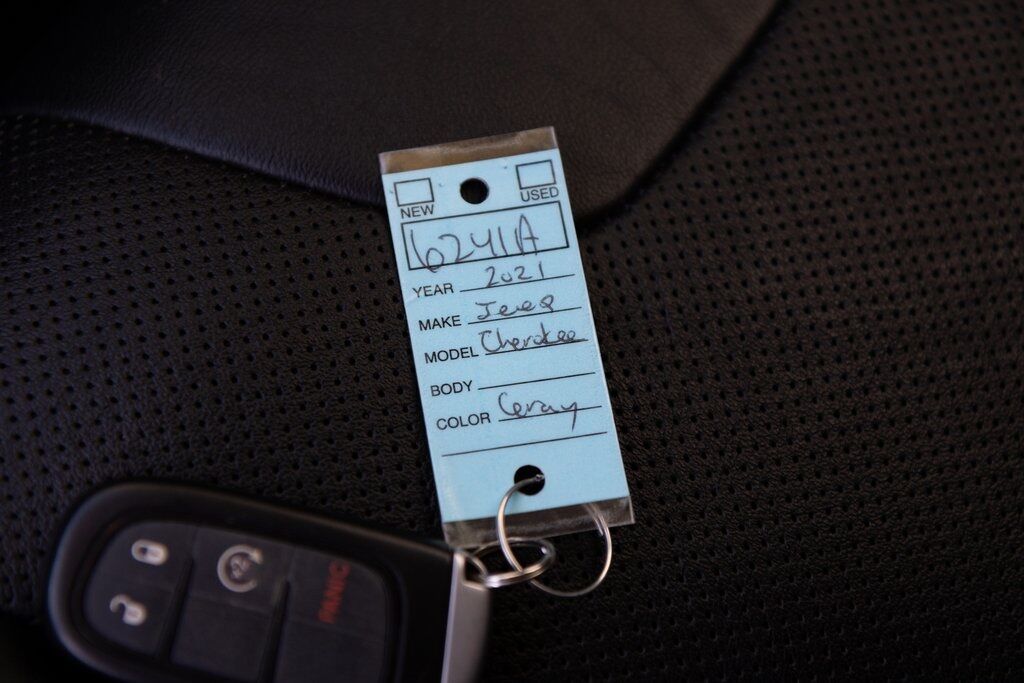 NEW USED
6241A
YEAR 2021
MAKE Jeep
MODEL Cherokee
BODY
COLOR Gray
PANIC